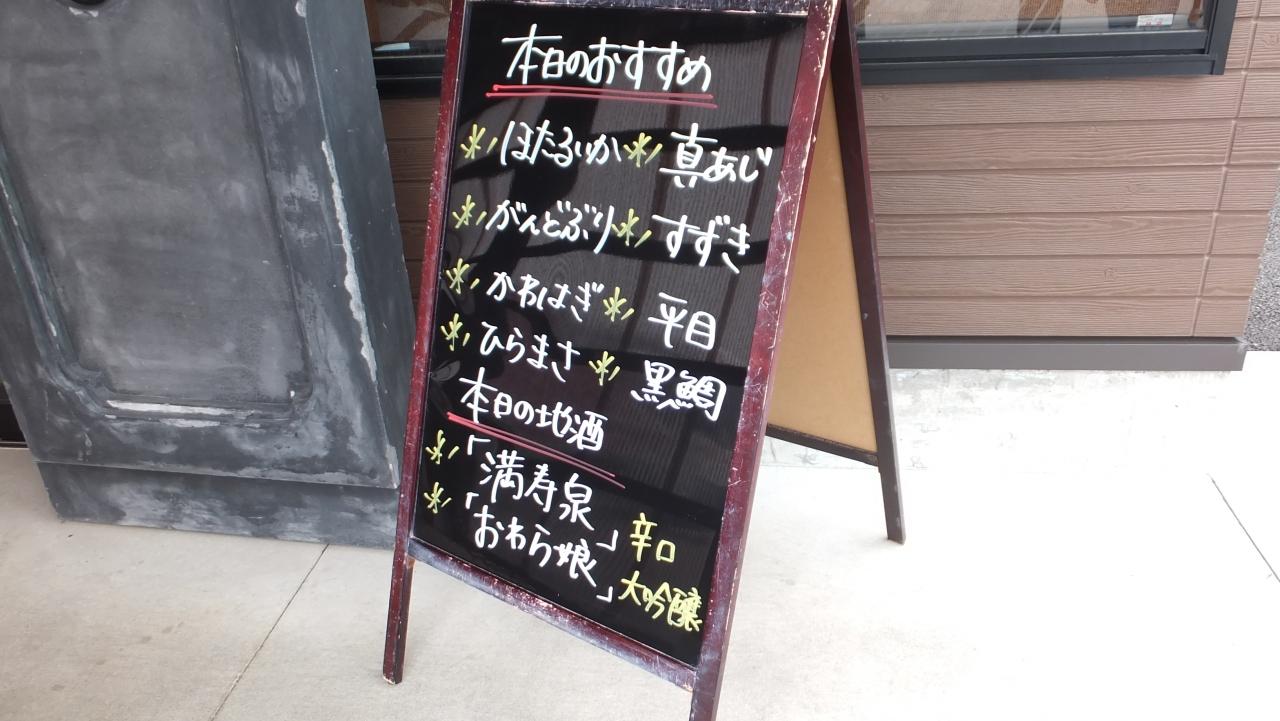 本日のおすすめ
ほたるいか 真あじ
がんどぶり すずき
かわはぎ 平目
ひらまさ 黒鯛
本日の地酒
「満寿泉」辛口
「おわら娘」大吟醸